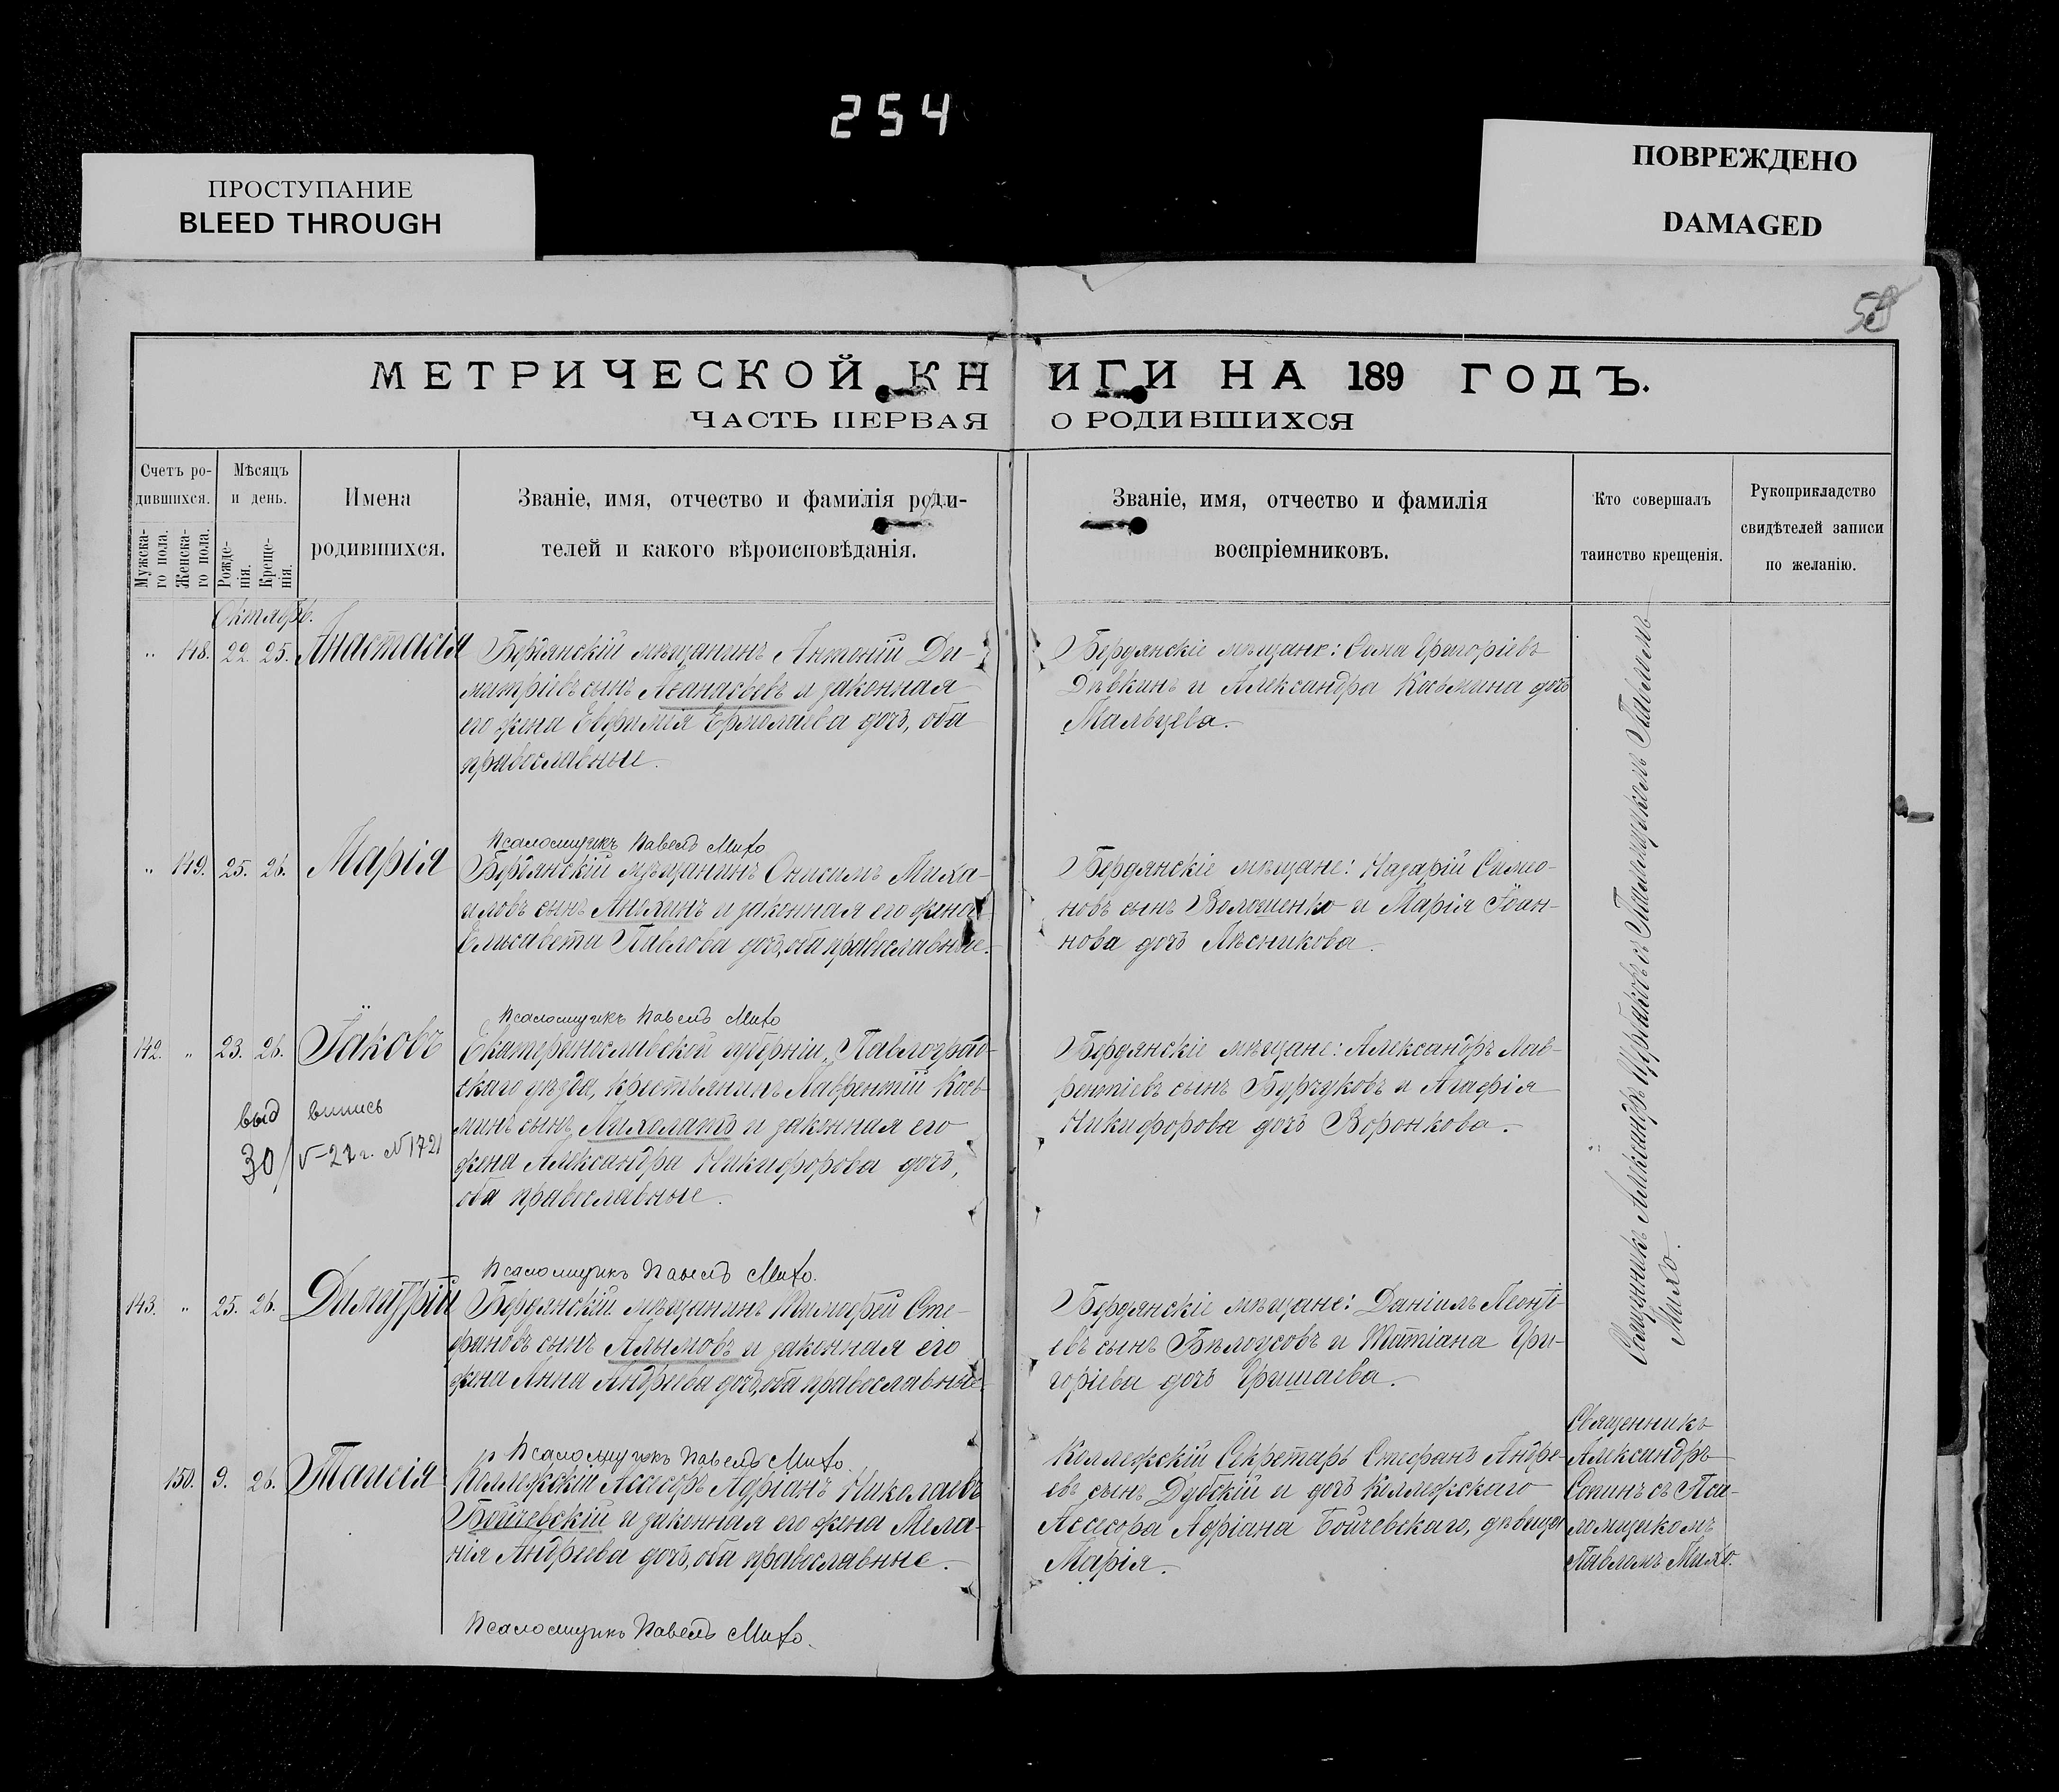 254
ПРОСТУПАНИЕ
BLEED THROUGH
ПОВРЕЖДЕНО
DAMAGED
МЕТРИЧЕСКОЙ КНИГИ НА 189 ГОДЪ.
ЧАСТЬ ПЕРВАЯ О РОДИВШИХСЯ
Счетъ ро-
дившихся.
Мужска-
го пола.
Женска-
го пола.
Мѣсяцъ
и день.
Рожде-
нія.
Креще-
нія.
Имена
родившихся.
Званіе, имя, отчество и фамилія роди-
телей и какого вѣроисповѣданія.
Званіе, имя, отчество и фамилія
воспріемниковъ.
Кто совершалъ
таинство крещенія.
Рукоприкладство
свидѣтелей записи
по желанію.
Октябрь.
" 148. 22. 25. Анастасія
Бердянскій мѣщанинъ Антоній Ди-
митріевъ сынъ Аѳанасьевъ и законная
его жена Евфимія Ермолаева дочь, оба
православные.
Бердянскіе мѣщане: Сима Григоріевъ
Дѣвкинъ и Александра Косьмина дочь
Мальцева.
Псаломщикъ Павелъ Михо
" 149. 25. 26. Марія
Бердянскій мѣщанинъ Онисимъ Миха-
иловъ сынъ Анохинъ и законная его жена
Елисавета Павлова дочь, оба православные.
Бердянскіе мѣщане: Назарій Симео-
новъ сынъ Волошенко и Марія Іоан-
нова дочь Лѣсникова.
Псаломщикъ Павелъ Михо
142. " 23. 26. Іаковъ
выд выпись
30/V-22 г. №1721
Екатеринославской губерніи, Павлоград-
скаго уѣзда, крестьянинъ Лаврентій Кось-
минъ сынъ Лихолатъ и законная его
жена Александра Никифорова дочь,
оба православные.
Бердянскіе мѣщане: Александръ Лав-
рентіевъ сынъ Бурдуковъ и Агафія
Никифорова дочь Воронкова.
Псаломщикъ Павелъ Михо.
143. " 25. 26. Димитрій
Бердянскій мѣщанинъ Тимофей Сте-
фановъ сынъ Алымовъ и законная его
жена Анна Андреева дочь, оба православные.
Бердянскіе мѣщане: Даніилъ Леонті-
евъ сынъ Бѣлоусовъ и Татіана Гри-
горіева дочь Гришаева.
Священникъ Александръ Щербаковъ съ Псаломщикомъ Павломъ
Михо.
Псаломщикъ Павелъ Михо
150. 9. 26. Таисія
Коллежскій Ассесоръ Адріанъ Николаевъ
Бойчевскій и законная его жена Мела-
нія Андреева дочь, оба православные.
Коллежскій Секретарь Стефанъ Андре-
евъ сынъ Дубскій и дочь Коллежскаго
Ассесора Адріана Бойчевскаго, дѣвица
Марія.
Священникъ
Александръ
Сокинъ съ Пса-
ломщикомъ
Павломъ Михо.
Псаломщикъ Павелъ Михо.